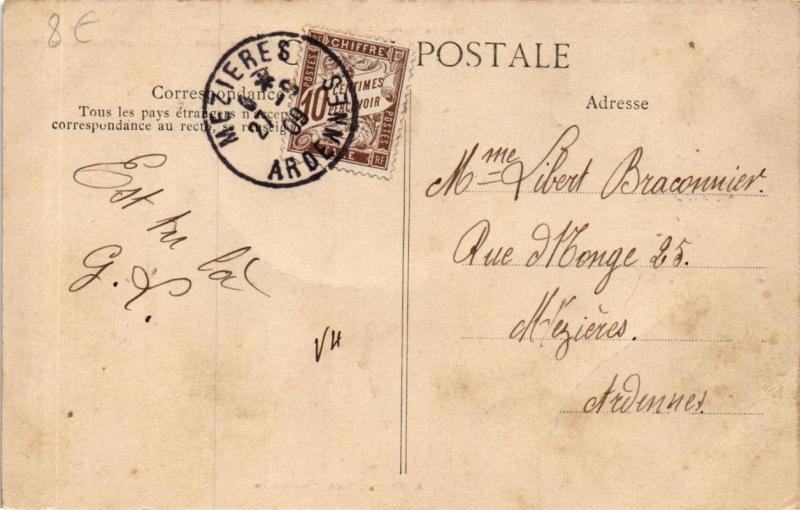 8 €
POSTALE
Correspondance
Tous les pays étrangers n'accep
correspondance au recto, se renseig
MEZIERES
27 -9
09
ARDENNES
CHIFFRE
POSTES
RF
10 CENTIMES
PERCEVOIR
POSTES
RF
Est tu là
G. L.
V4
Adresse
Mme Libert Braconnier.
Rue d'Monge 25.
Mézières.
Ardennes.